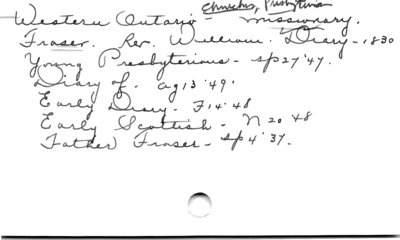 Churches, Presbyterian
Western Ontario - missionary.
Fraser. Rev. William. Diary - 1830
Young Presbyterians - sp 27 '47.
Diary of - ag 13 '49.
Early Diary - F 14 '48
Early Scottish - N 20 '48
Father Fraser - sp 4 '37.